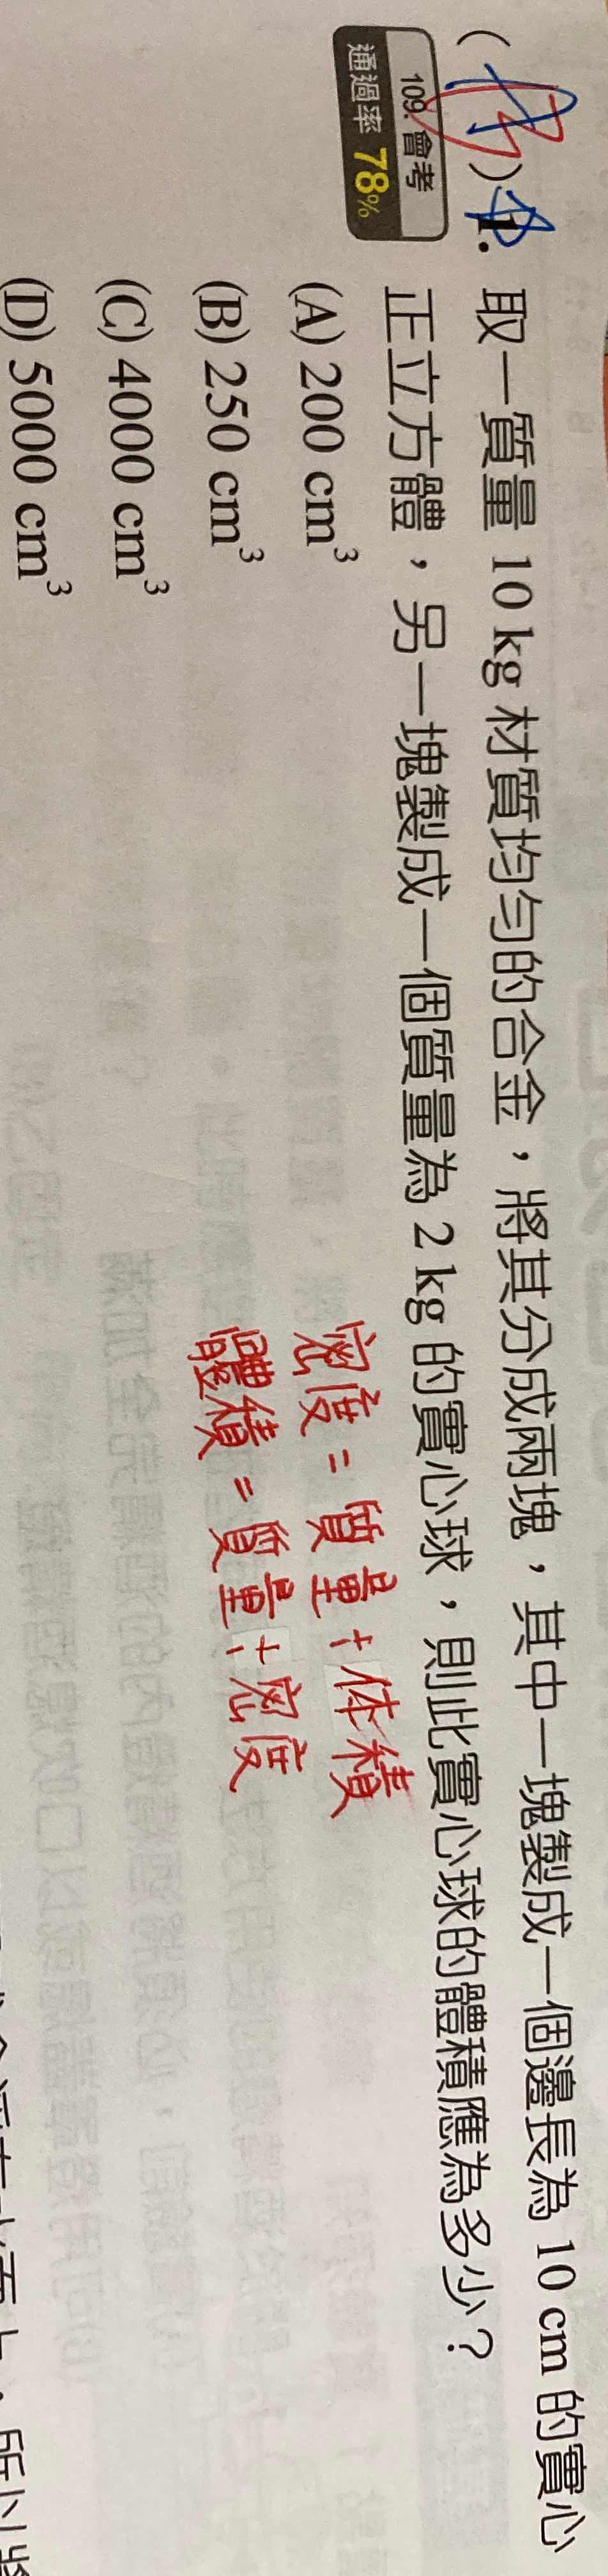 (B) 1. 取一質量 10 kg 材質均勻的合金，將其分成兩塊，其中一塊製成一個邊長為 10 cm 的實心
109. 會考
通過率 78%
正立方體，另一塊製成一個質量為 2 kg 的實心球，則此實心球的體積應為多少？
(A) 200 cm³
密度 = 質量 ÷ 体積
(B) 250 cm³
體積 = 質量 ÷ 密度
(C) 4000 cm³
(D) 5000 cm³